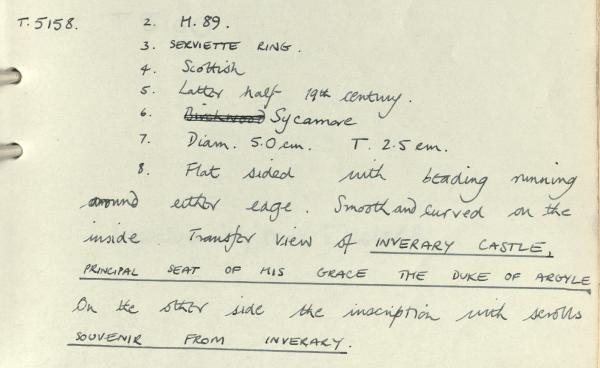 T.5158. 2. H.89.
3. SERVIETTE RING.
4. Scottish
5. Latter half 19th century.
6. Birchwood Sycamore
7. Diam. 5.0 cm. T. 2.5 cm.
8. Flat sided with beading running
around either edge. Smooth and curved on the
inside. Transfer view of INVERARY CASTLE,
PRINCIPAL SEAT OF HIS GRACE THE DUKE OF ARGYLE
On the other side the inscription with scrolls
SOUVENIR FROM INVERARY.